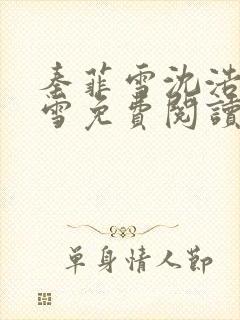 秦菲雪沈浩
雪免費閱讀
單身情人節